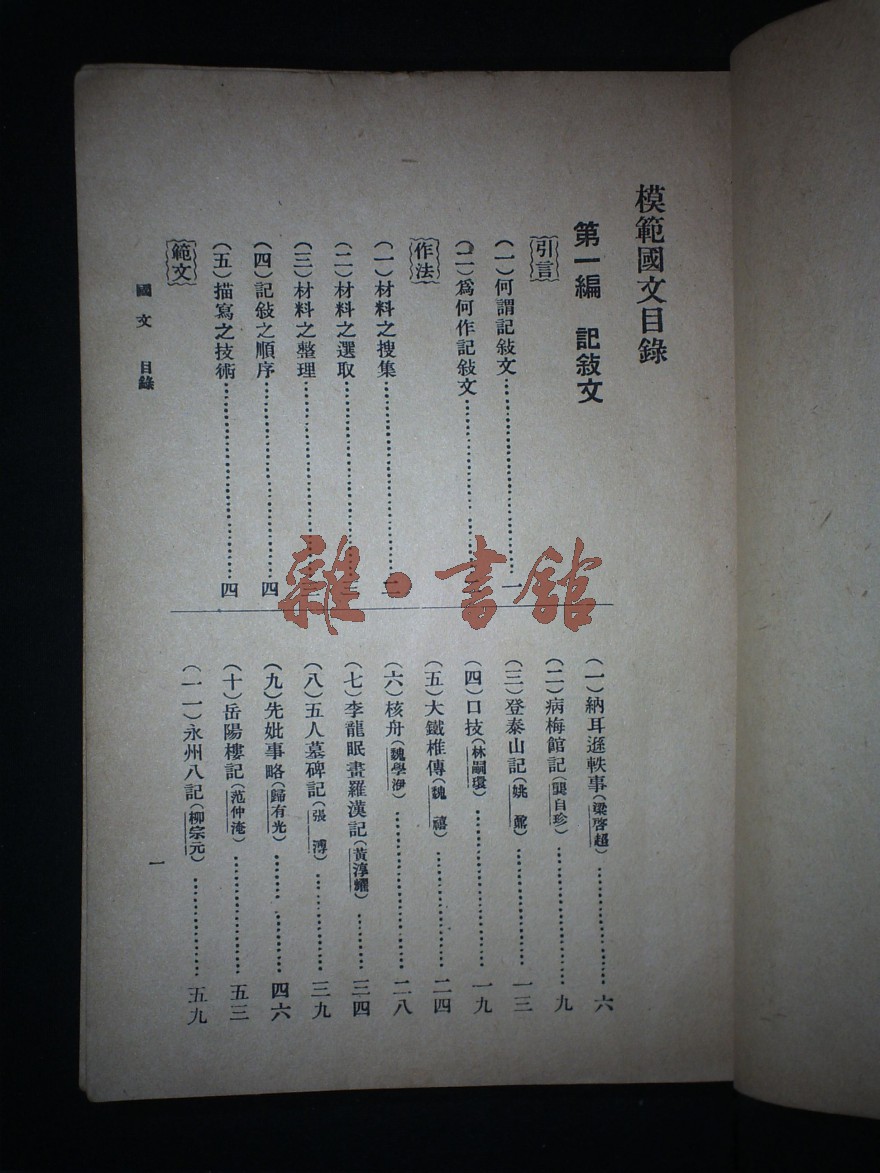 模範國文目錄
第一編 記敍文
引言
(一)何謂記敍文…………一
(二)爲何作記敍文…………
作法
(一)材料之搜集…………二
(二)材料之選取…………
(三)材料之整理…………
(四)記敍之順序…………四
(五)描寫之技術…………四
範文
(一)納耳遜軼事(梁啓超)…………六
(二)病梅館記(龔自珍)…………九
(三)登泰山記(姚鼐)…………一三
(四)口技(林嗣環)…………一九
(五)大鐵椎傳(魏禧)…………二四
(六)核舟(魏學洢)…………二八
(七)李龍眠畫羅漢記(黃淳耀)…………三四
(八)五人墓碑記(張溥)…………三九
(九)先妣事略(歸有光)…………四六
(十)岳陽樓記(范仲淹)…………五三
(一一)永州八記(柳宗元)…………五九
國文 目錄
一
雜·書館